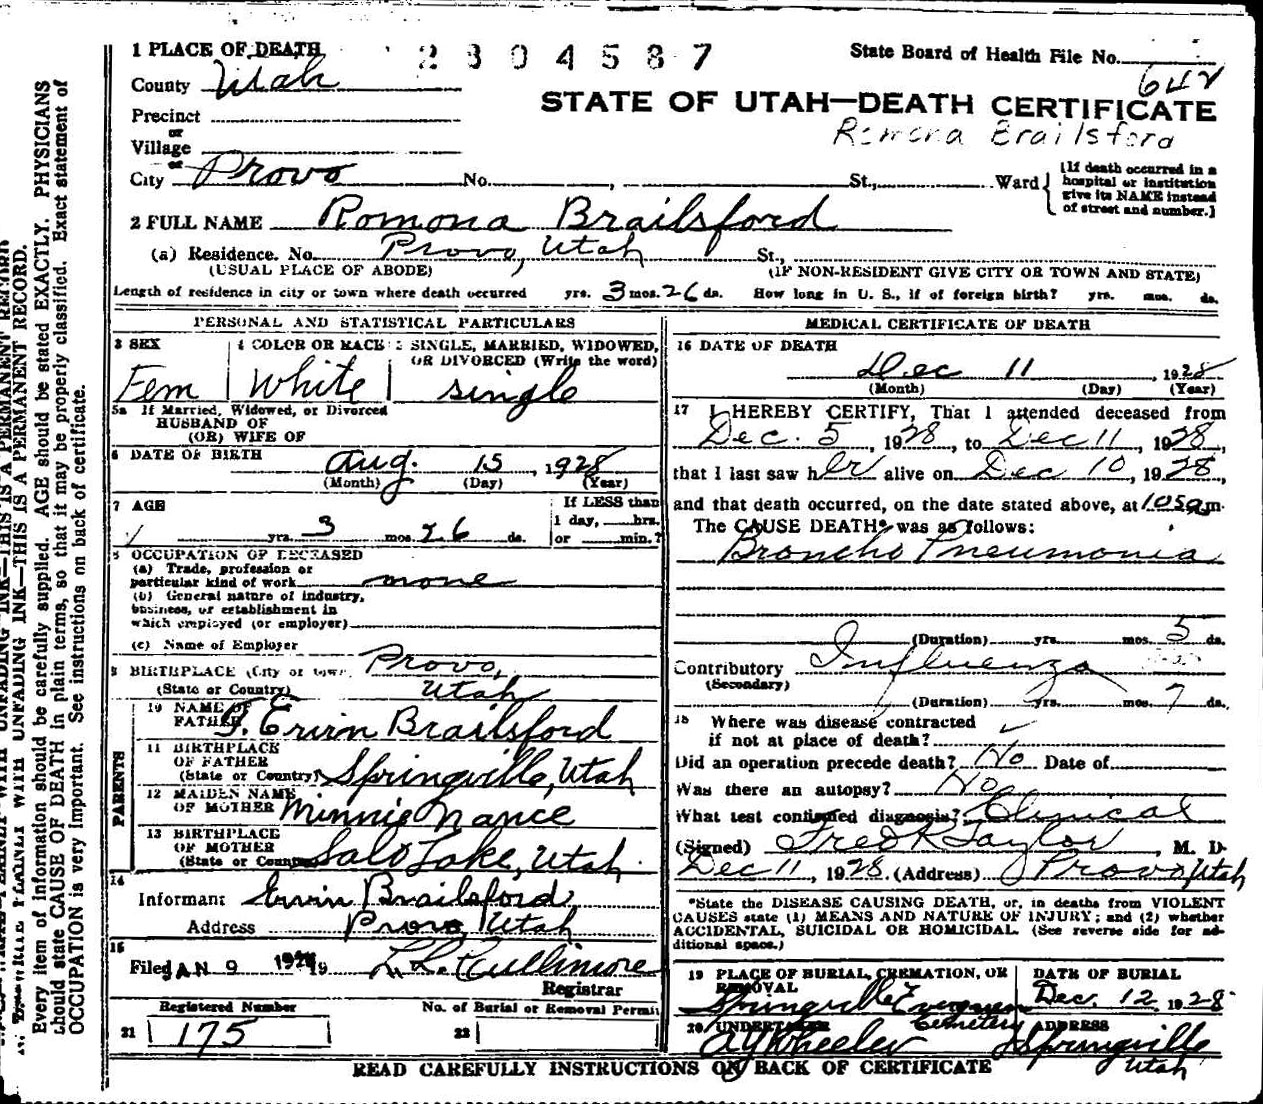 1 PLACE OF DEATH
2304587
State Board of Health File No.
642
County Utah
STATE OF UTAH—DEATH CERTIFICATE
Precinct
Romona Brailsford
or
Village
or
City Provo No. , St., Ward
(If death occurred in a hospital or institution give its NAME instead of street and number.)
2 FULL NAME Romona Brailsford
(a) Residence. No. Provo, Utah St.,
(USUAL PLACE OF ABODE) (IF NON-RESIDENT GIVE CITY OR TOWN AND STATE)
Length of residence in city or town where death occurred yrs. 3 mos. 26 ds. How long in U. S., if of foreign birth? yrs. mos. ds.
PERSONAL AND STATISTICAL PARTICULARS
3 SEX
Fem
4 COLOR OR RACE
White
5 SINGLE, MARRIED, WIDOWED,
OR DIVORCED (Write the word)
single
5a If Married, Widowed, or Divorced
HUSBAND OF
(OR) WIFE OF
6 DATE OF BIRTH Aug. 15, 1928
(Month) (Day) (Year)
7 AGE
yrs. 3 mos. 26 ds.
If LESS than
1 day, hrs.
or min.?
8 OCCUPATION OF DECEASED
(a) Trade, profession or
particular kind of work none
(b) General nature of industry,
business, or establishment in
which employed (or employer)
(c) Name of Employer
9 BIRTHPLACE (City or town) Provo,
(State or Country) Utah
PARENTS
10 NAME OF
FATHER Ervin Brailsford
11 BIRTHPLACE
OF FATHER
(State or Country) Springville, Utah
12 MAIDEN NAME
OF MOTHER Minnie Nance
13 BIRTHPLACE
OF MOTHER
(State or Country) Salt Lake, Utah.
14
Informant Ervin Brailsford,
Address Provo, Utah
15
Filed JAN 9 19 L. L. Cullimore
Registrar
Registered Number No. of Burial or Removal Permit
21 175 22
MEDICAL CERTIFICATE OF DEATH
16 DATE OF DEATH
Dec 11, 1928
(Month) (Day) (Year)
17 I HEREBY CERTIFY, That I attended deceased from
Dec. 5, 1928, to Dec 11, 1928,
that I last saw her alive on Dec 10, 1928,
and that death occurred, on the date stated above, at 105am.
The CAUSE DEATH* was as follows:
Broncho Pneumonia
(Duration) yrs. mos. 5 ds.
Contributory Influenza
(Secondary)
(Duration) yrs. mos. 7 ds.
18 Where was disease contracted
if not at place of death?
Did an operation precede death? No Date of
Was there an autopsy? No
What test confirmed diagnosis? Clinical
(Signed) Fred R Taylor, M. D.
Dec 11, 1928 (Address) Provo, Utah
*State the DISEASE CAUSING DEATH, or, in deaths from VIOLENT
CAUSES state (1) MEANS AND NATURE OF INJURY; and (2) whether
ACCIDENTAL, SUICIDAL OR HOMICIDAL. (See reverse side for ad-
ditional space.)
19 PLACE OF BURIAL, CREMATION, OR
REMOVAL
Springville Evergreen
Cemetery
DATE OF BURIAL
Dec. 12 1928
20 UNDERTAKER
A Y Wheeler
ADDRESS
Springville
Utah
READ CAREFULLY INSTRUCTIONS ON BACK OF CERTIFICATE
INK—THIS IS A PERMANENT RECORD.
WITH UNFADING INK—THIS IS A PERMANENT RECORD.
Every item of information should be carefully supplied. AGE should be stated EXACTLY. PHYSICIANS
should state CAUSE OF DEATH in plain terms, so that it may be properly classified. Exact statement of
OCCUPATION is very important. See instructions on back of certificate.